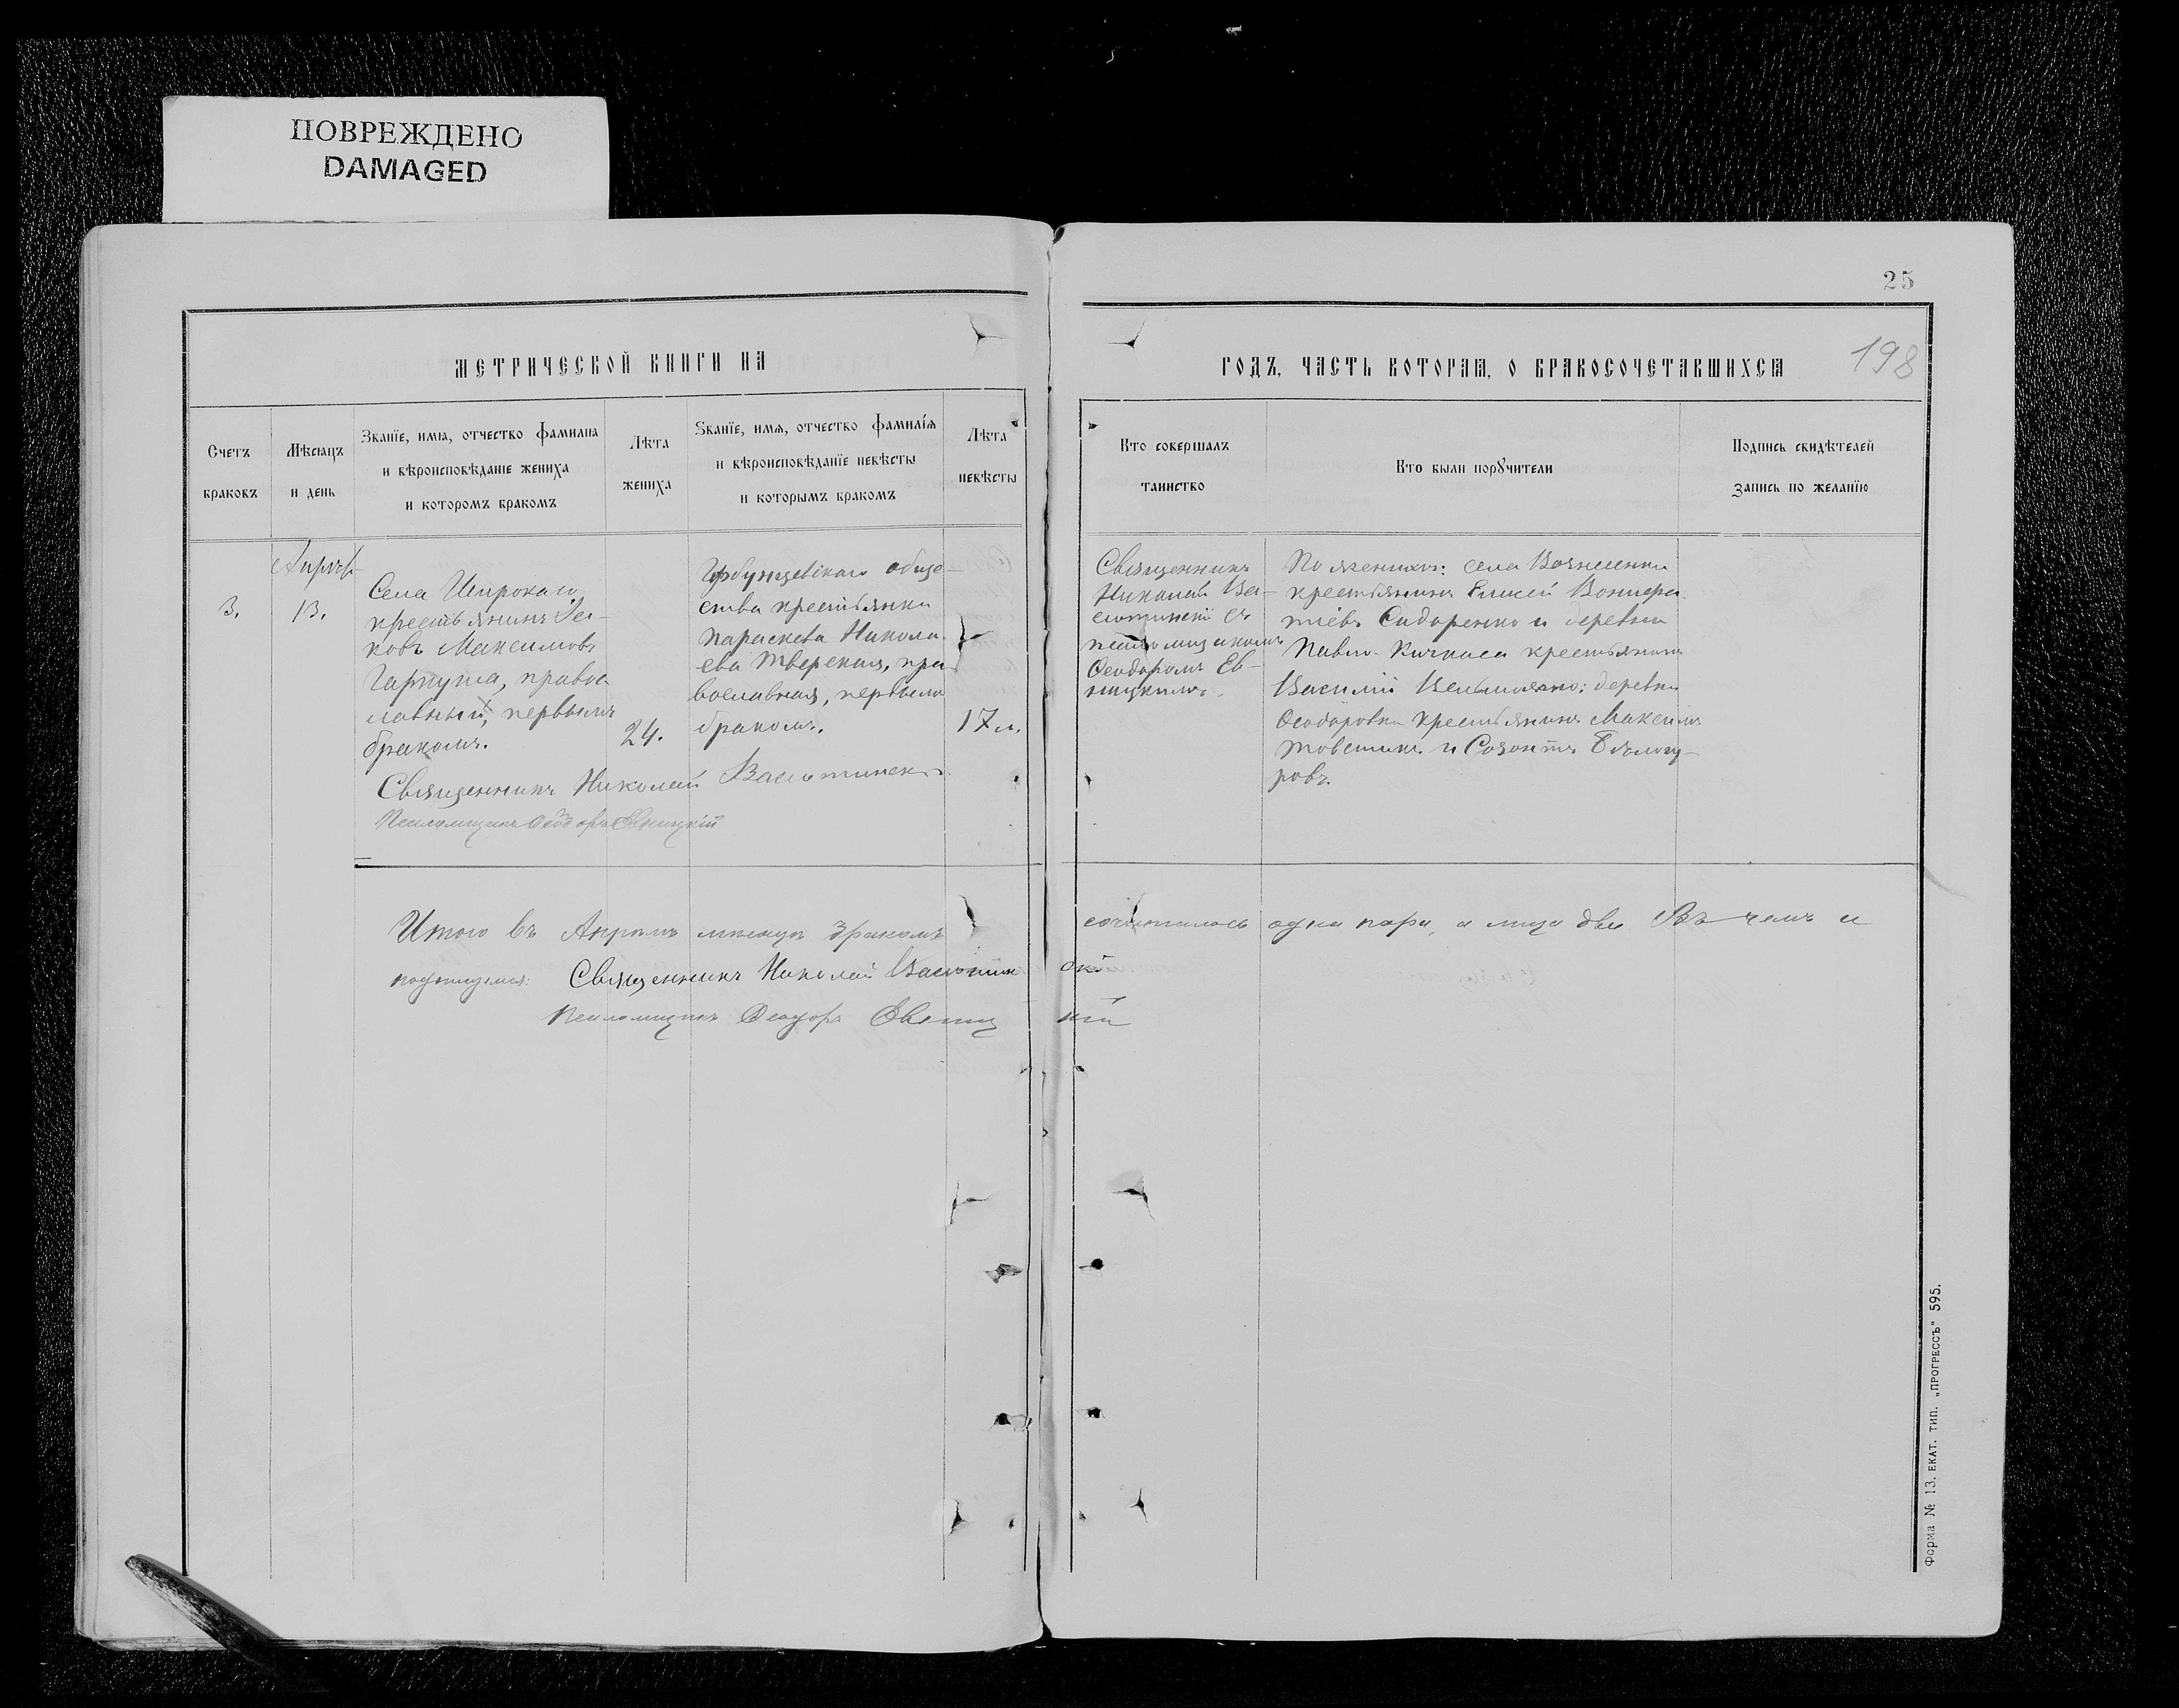 ПОВРЕЖДЕНО
DAMAGED
25
198
МЕТРИЧЕСКОЙ КНИГИ НА
ГОДЪ, ЧАСТЬ ВТОРАЯ, О БРАКОСОЧЕТАВШИХСЯ
Счетъ
браковъ
Мѣсяцъ
и день
Званіе, имя, отчество фамилія
и вѣроисповѣданіе жениха
и которомъ бракомъ
Лѣта
жениха
Званіе, имя, отчество фамилія
и вѣроисповѣданіе невѣсты
и которымъ бракомъ
Лѣта
невѣсты
Кто совершалъ
таинство
Кто были поручители
Подпись свидѣтелей
запись по желанію
3.
Апрѣль
13.
Села Широкаго
крестьянинъ
Максимовъ
Гаркуша, правос
лавный, первымъ
бракомъ.
24.
обще-
ства крестьянка
Параскева Никола
ева Тверская, пра
вославная, первымъ
бракомъ.
17 л.
Священникъ
Николай Ва-
сютинскій съ
псаломщикомъ
Ѳеодоромъ Ев-
ницкимъ.
По женихѣ: села Вознесенки
крестьянинъ Елисей
Сидоренко и деревни
Павло-Кичкаса крестьянинъ
Василій деревни
Ѳеодоровки крестьянинъ Максимъ
Товстикъ и Созонтъ Бѣлогу-
ровъ.
Священникъ Николай Васютинск
Псаломщикъ Ѳеодоръ Евницкій
Итого въ Апрѣлѣ мѣсяцѣ бракомъ сочеталось одна пара, а лица два Въ чемъ и
подпишемся: Священникъ Николай Васютинскій
Псаломщикъ Ѳеодоръ Евницкій
Форма № 13. ЕКАТ. ТИП. „ПРОГРЕССЪ" 595.